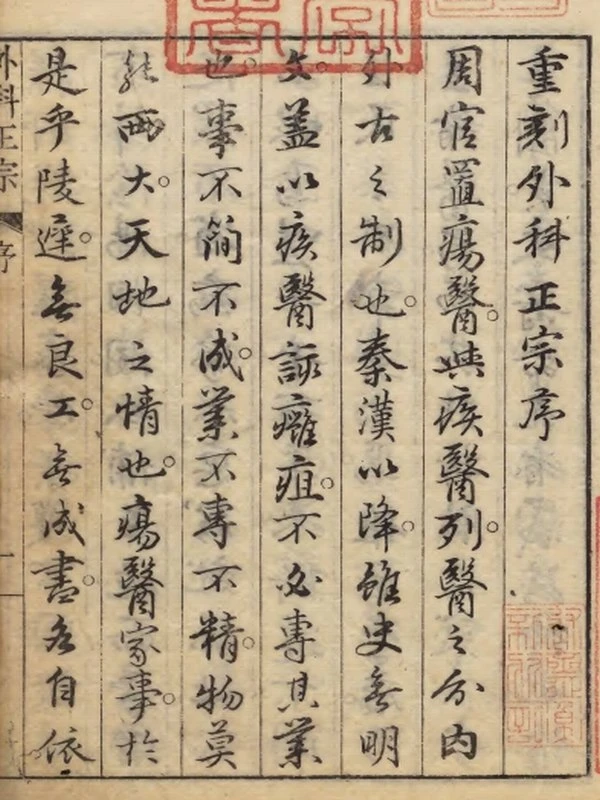 重刻外科正宗序
周官置瘍醫。與疾醫列。醫之分內
外古之制也。秦漢以降。雖史無明
文。蓋以疾醫診癰疽。不必專其業
也。事不簡不成。業不專不精。物莫
能兩大。天地之情也。瘍醫家事。於
是乎陵遲。無良工。無成書。各自依
外科正宗
序
一